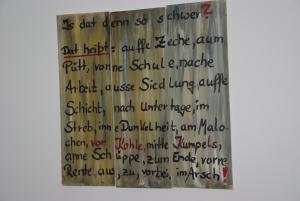 Is dat denn so schwer?
Dat heibt: auffe Zeche, aum
Pütt, vonne Schule, nache
Arbeit, ausse Siedlung, auffe
Schicht, nach Untertage, im
Streb, inne Dunkelheit, am Malo-
chen, vor Kohle, mitte Kumpels,
anne Schüppe, zum Ende, vorre
Rente, aus, zu, vorbei, im Arsch!